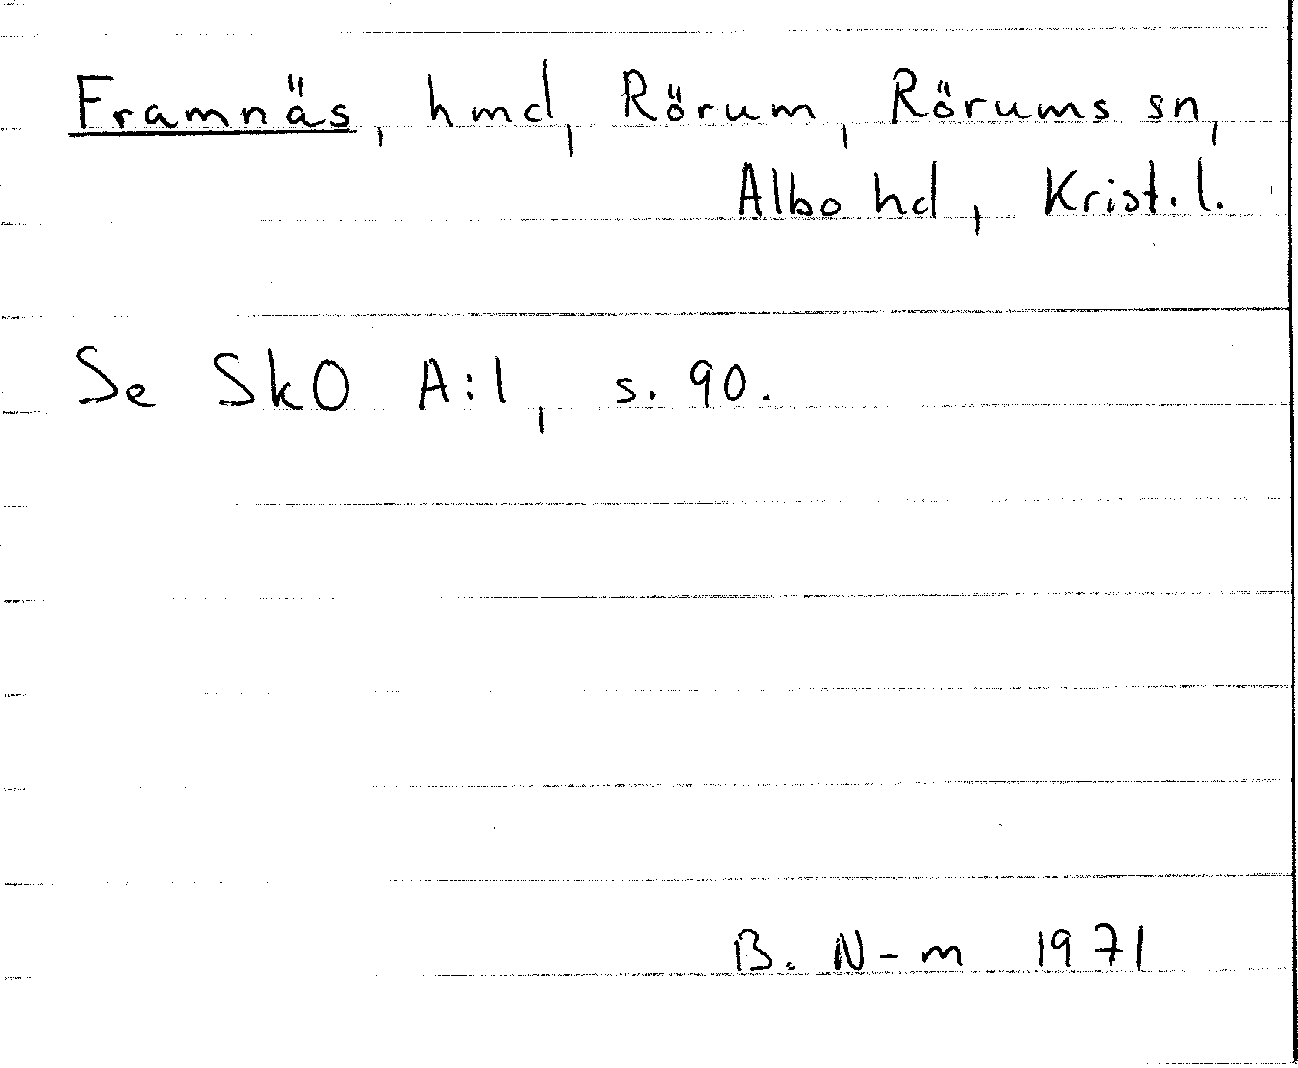 Framnäs, hmd, Rörum, Rörums sn,
Albo hd, Krist. l.
Se SkO A:1, s. 90.
B. N-m 1971